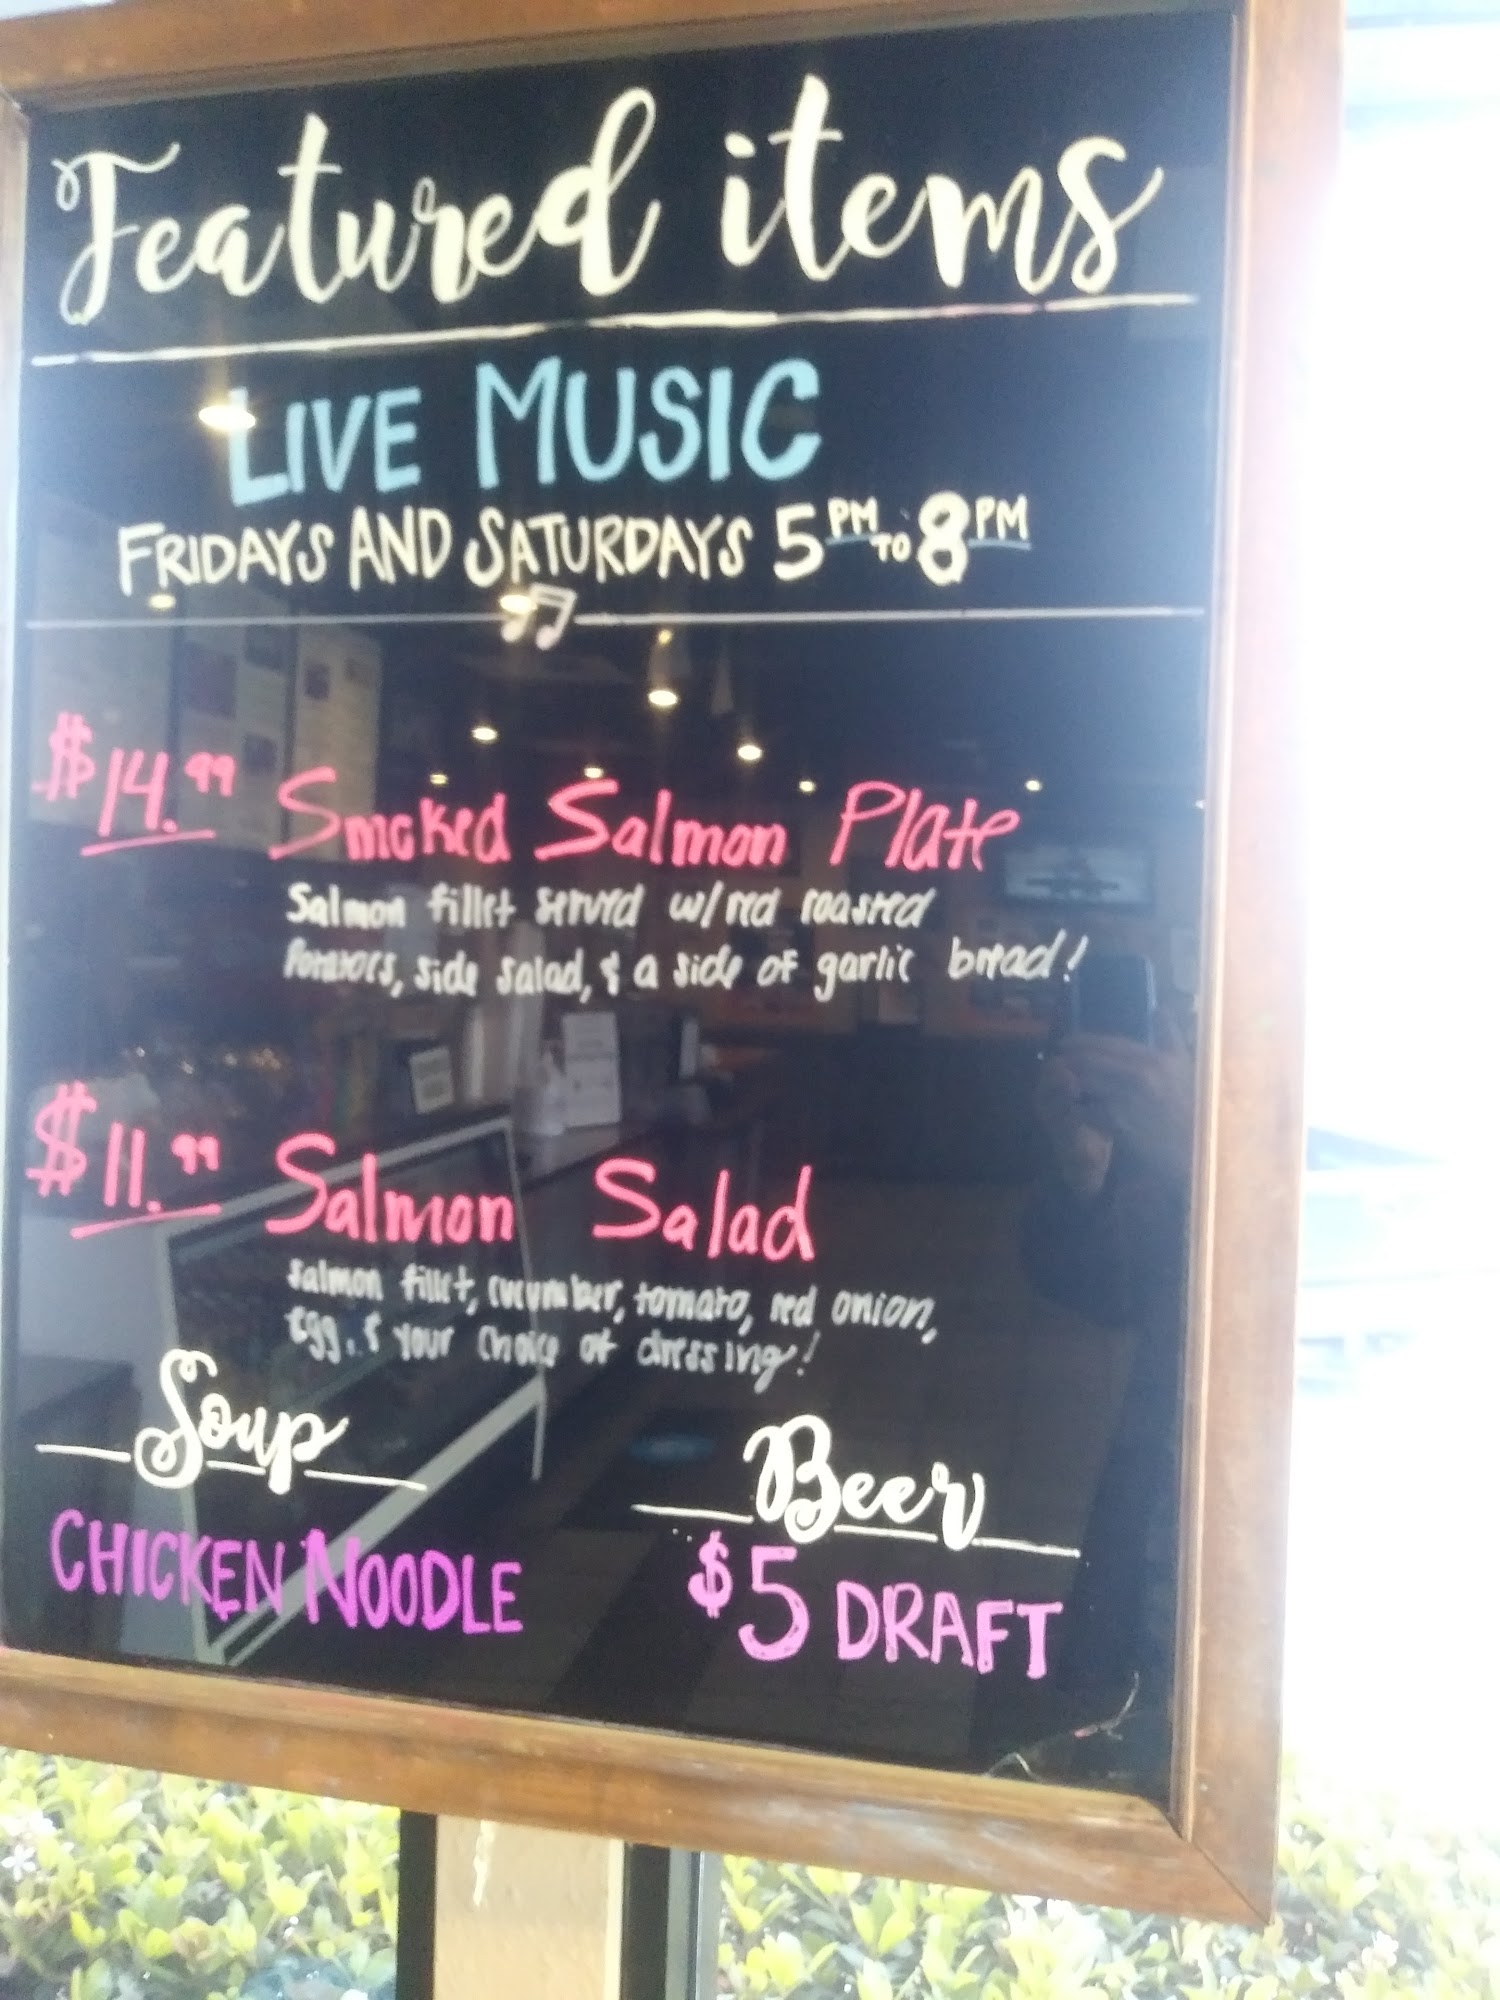 Featured items
LIVE MUSIC
FRIDAYS AND SATURDAYS 5PM TO 8PM
$14.99 Smoked Salmon Plate
Salmon fillet served w/red roasted
Potatoes, side salad, & a side of garlic bread!
$11.99 Salmon Salad
Salmon fillet, cucumber, tomato, red onion,
Egg, & your choice of dressing!
Soup
Beer
CHICKEN NOODLE
$5 DRAFT